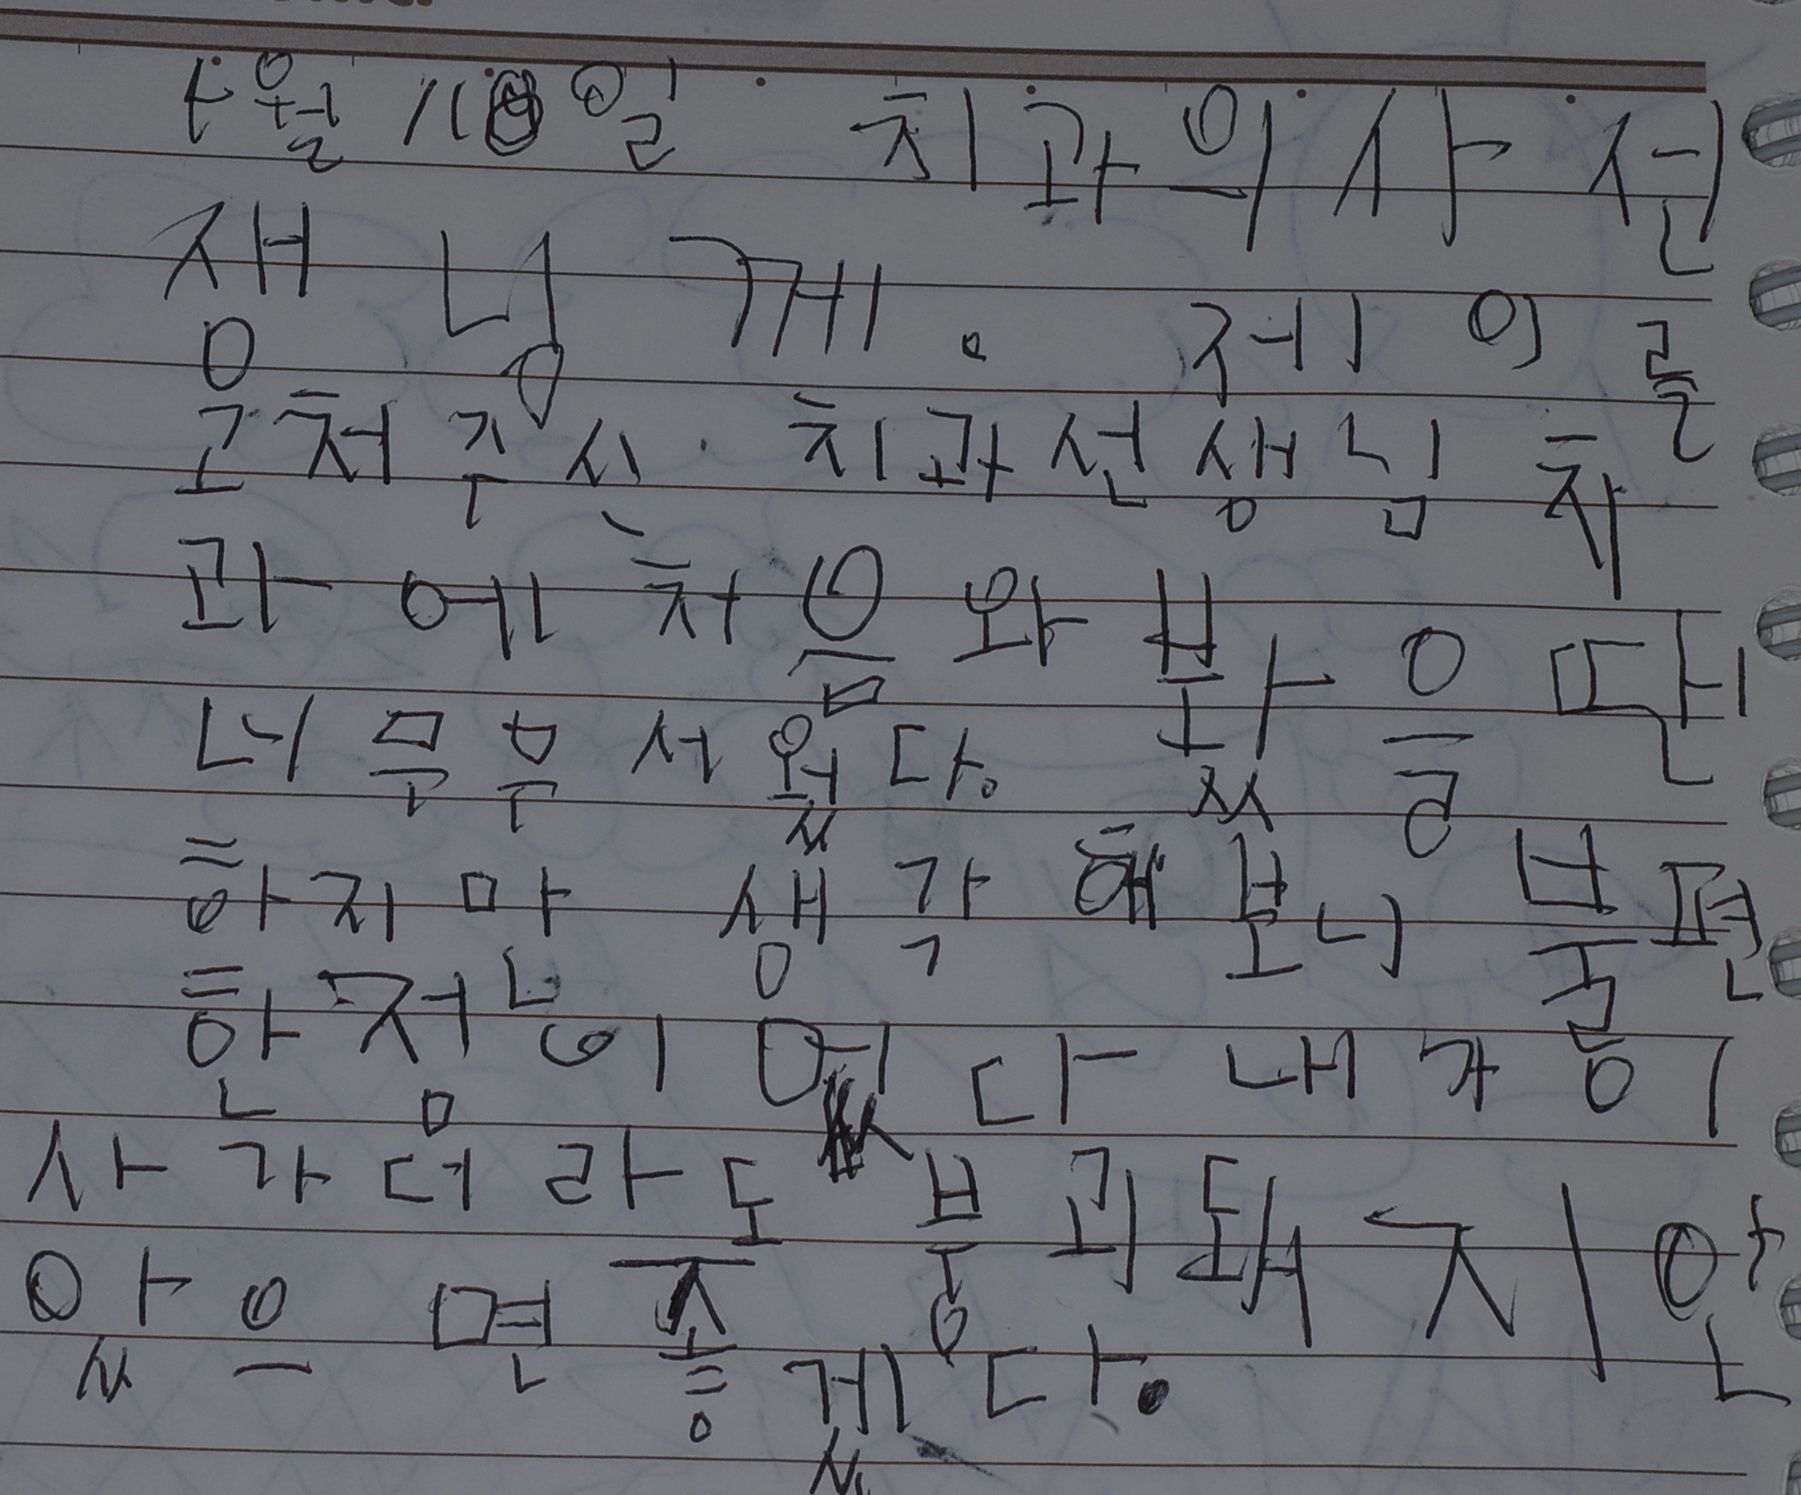 4월 18일 치과의사 선
생닝 께. 제 이를
고처주신 치과선생님 치
과에 처음 와봤을 땐
너무무서웠다.
하지마 생각해보니 불편
한점이 있다 내가 이
사가더라도 붕괴돼지 안
았으면 좋겠다.